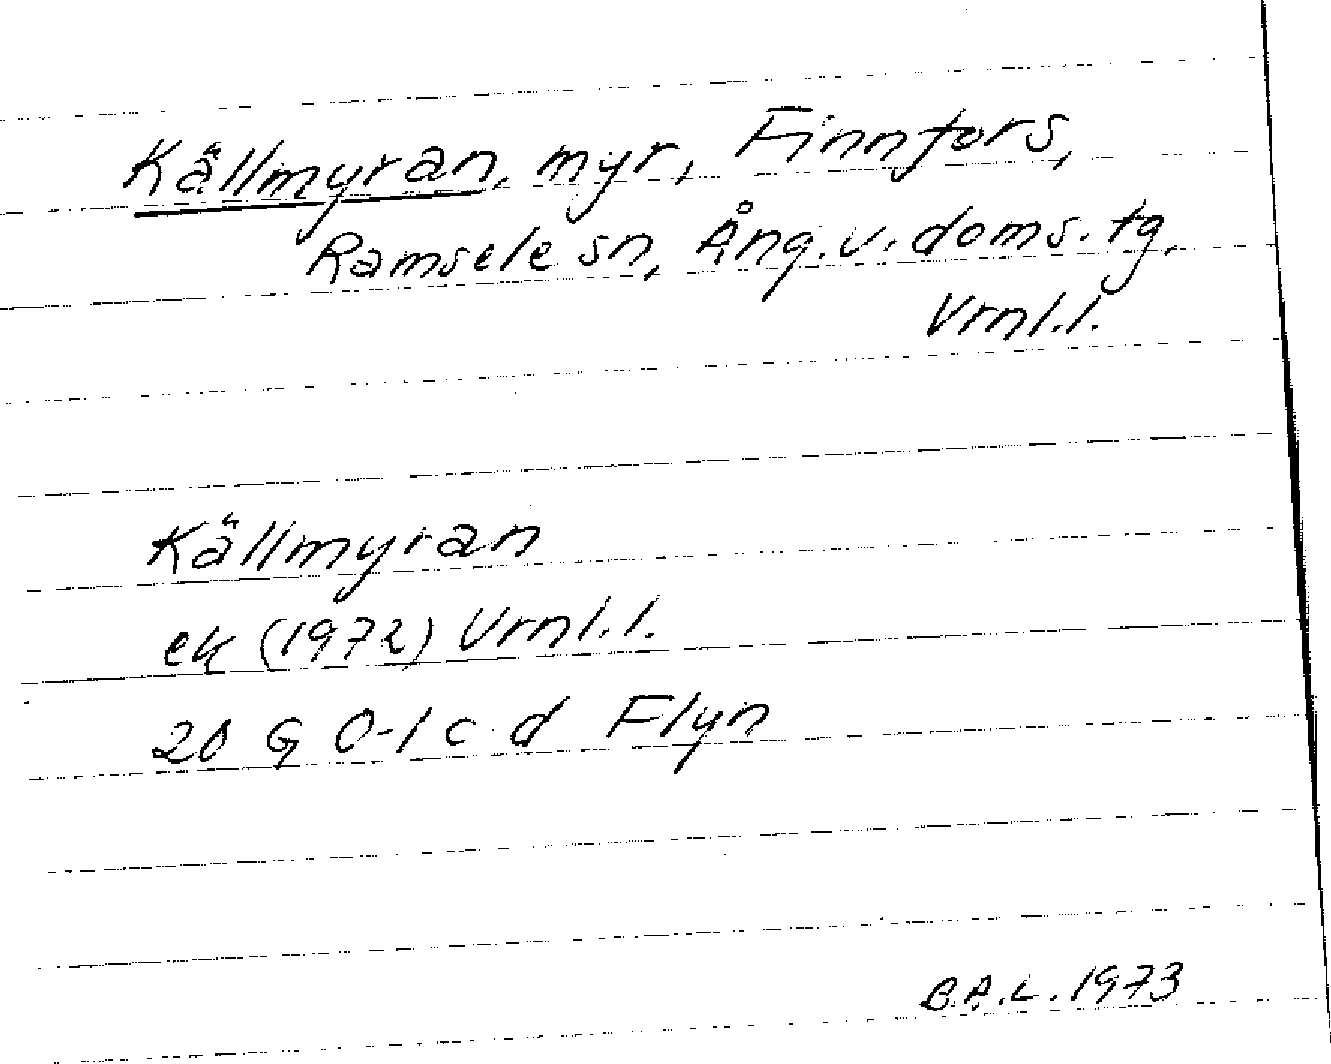 Källmyran, myr, Finnfors,
Ramsele sn, Ång. v. doms. tg,
Vrnl.l.
Källmyran
ek (1972) Vrnl.l.
20 G 0-1 c-d Flyn
B.A.L. 1973